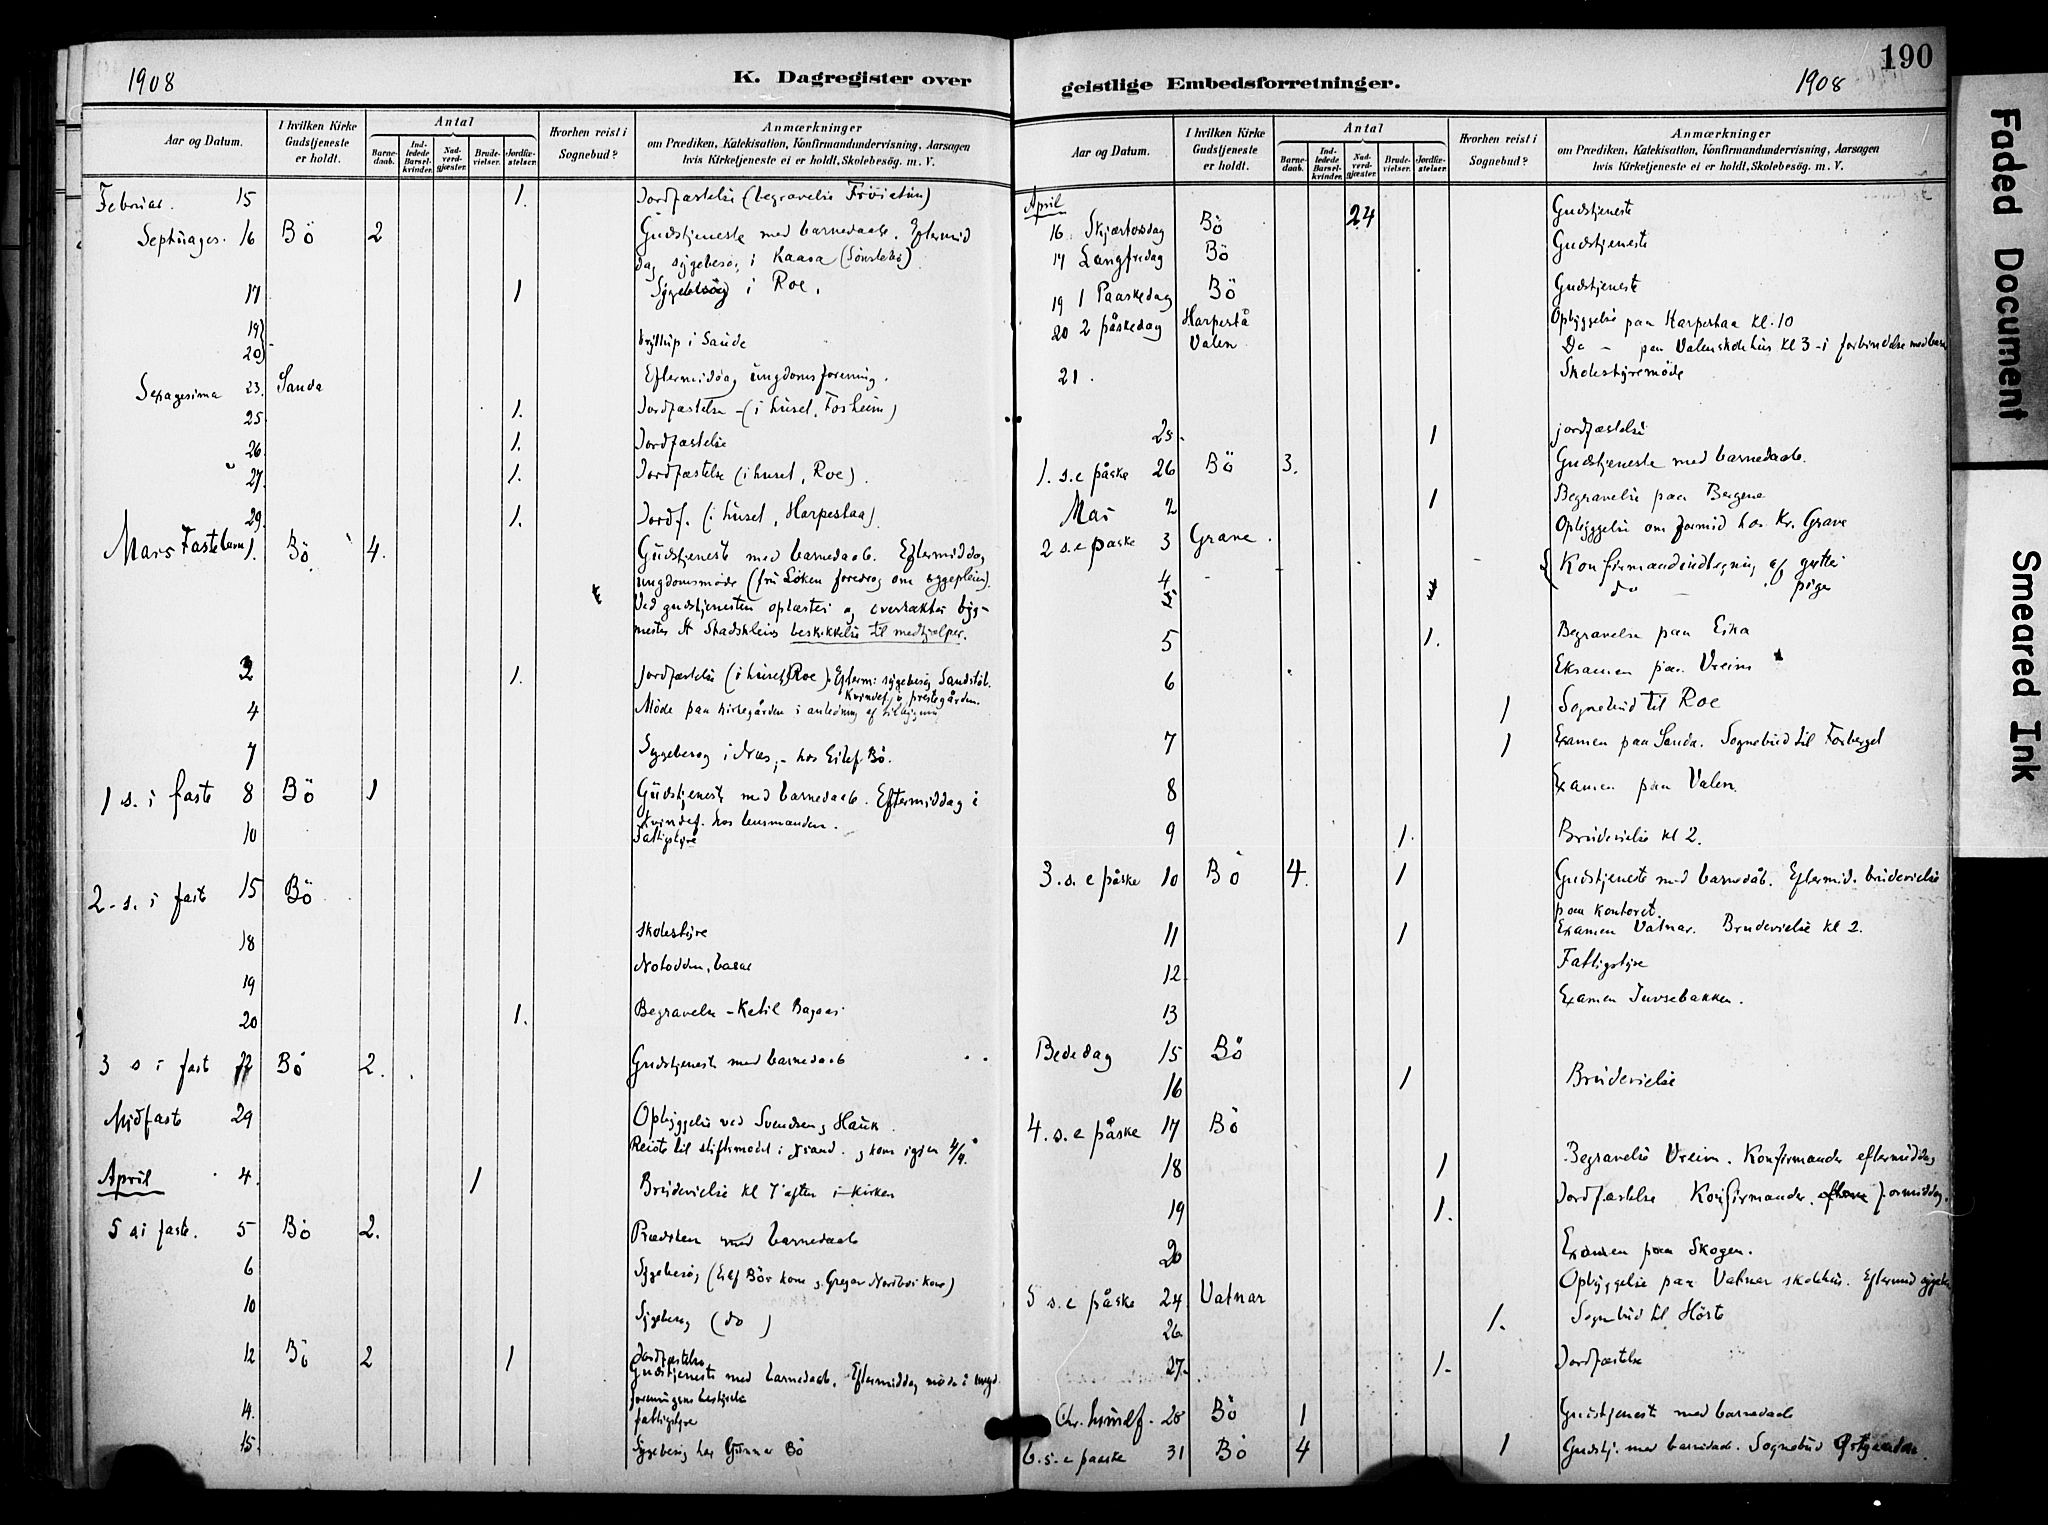 190
1908
K. Dagregister over
geistlige Embedsforretninger.
1908
Aar og Datum.
I hvilken Kirke Gudstjeneste er holdt.
Antal
Barnedaab.
Indledede Barselkvinder.
Nadverdgjæster.
Brudevielser.
Jordfæstelser.
Hvorhen reist i Sognebud?
Anmærkninger
om Prædiken, Katekisation, Konfirmandundervisning, Aarsagen
hvis Kirketjeneste ei er holdt, Skolebesög. m. V.
Februar. 15 1. Jordfæstelse (begravelse
Septuages. 16 Bö 2 Gudstjeneste med barnedaab. Eftermid
dag sygebesøg i Kaasa
17 1 Sygebesøg i Roe.
19
20 bryllup i Saude
Sexagesima 23. Sanda Eftermiddag ungdomsforening.
25 1. Jordfæstelse - (i huset, Fosheim)
26 1. Jordfæstelse
27. 1. Jordfæstelse (i huset, Roe).
29. 1. Jordf. (i huset, Harpestaa)
Mars Fastelavn 1. Bö 4. Gudstjeneste med barnedaab. Eftermiddag
ungdomsmøde (fru Løken foredrag om sygepleien).
Ved gudstjenesten oplæstes og overraktes byg-
mester beskikkelse til medhjælper.
2 1. Jordfæstelse (i huset, Roe). Efterm: sygebesøg
Kvindef. i prestegården.
4 Möde paa kirkegården i anledning af
7 Sygebesøg i Næs, - hos Eilef Bö.
1 s. i faste 8 Bö 1 Gudstjeneste med barnedaab. Eftermiddag i
kvindef. hos lensmanden.
10 Fattigstyre
2 - s. i faste 15 Bö
18 Skolestyre
19 Notodden, basar
20 1. Begravelse - Ketil
3 s i fast 22 Bö 2. Gudstjeneste med barnedaab
Midfaste 29 Opbyggelse ved Svendsen og Hauk
Reiste til stiftsmødet i og kom igjen
April 4. 1 Brudevielse kl 7 aften i kirken
5 s i faste. 5 Bö 2. Prædiken med barnedaab
6 Sygebesøg
10 Sygebesøg (do)
12 Bö 2 1 Jordfæstelse
Gudstjeneste med barnedaab. Eftermiddag møde i ungd-
foreningens bestyrelse
14. fattigstyre
15. Sygebesøg hos Gunnar Bö
Aar og Datum.
I hvilken Kirke Gudstjeneste er holdt.
Antal
Barnedaab.
Indledede Barselkvinder.
Nadverdgjæster.
Brudevielser.
Jordfæstelser.
Hvorhen reist i Sognebud?
Anmærkninger
om Prædiken, Katekisation, Konfirmandundervisning, Aarsagen
hvis Kirketjeneste ei er holdt, Skolebesög. m. V.
April
16 Skjærtorsdag Bö 24 Gudstjeneste
17 Langfredag Bö Gudstjeneste
19 1 Paaskedag Bö Gudstjeneste
20 2 påskedag Harpestå Opbyggelse paa Harpestaa kl. 10
Valen Do - paa Valen skolehus kl 3 - i forbindelse med barn
21. Skolestyremöde
25. 1 jordfæstelse
1. s. e påske 26 Bö 3. Gudstjeneste med barnedaab.
Mai 2 1 Begravelse paa Bergene
2 s. e paaske 3 Grave. Opbyggelse om formid hos Kr. Grave
4 Konfirmandindtegning af gutter
5 do - piger
5 1. Begravelse paa Eika
6 Eksamen paa Vreim
1 Sognebud til Roe
7 1 Examen paa Sanda. Sognebud til Forberget
8 Examen paa Valen.
9 1. Brudevielse kl 2.
3. s. e påske 10 Bö 4. 1 Gudstjeneste med barnedåb. Eftermid. brudevielse
paa kontoret.
11 1 Examen Vatnar. Brudevielse kl 2.
12. Fattigstyre
13 Examen Torsebakken.
Bededag 15 Bö
16 1 Brudevielse
4. s. e påske 17 Bö
18 1 Begravelse Vreim. Konfirmander eftermiddag
19 1. Jordfæstelse Konfirmander formiddag.
20 Examen paa Skogen.
5 s. e påske 24 Vatnar Opbyggelse paa Vatnar skolehus. Eftermid
26. 1. Sognebud til Hörte
27. 1. Jordfæstelse
Chr. himelf. 28 Bö 1 Gudstjeneste med barnedaab
6. s. e paaske 31 Bö 4 1 Gudstj. med barnedaab. Sognebud
Faded Document
Smeared Ink